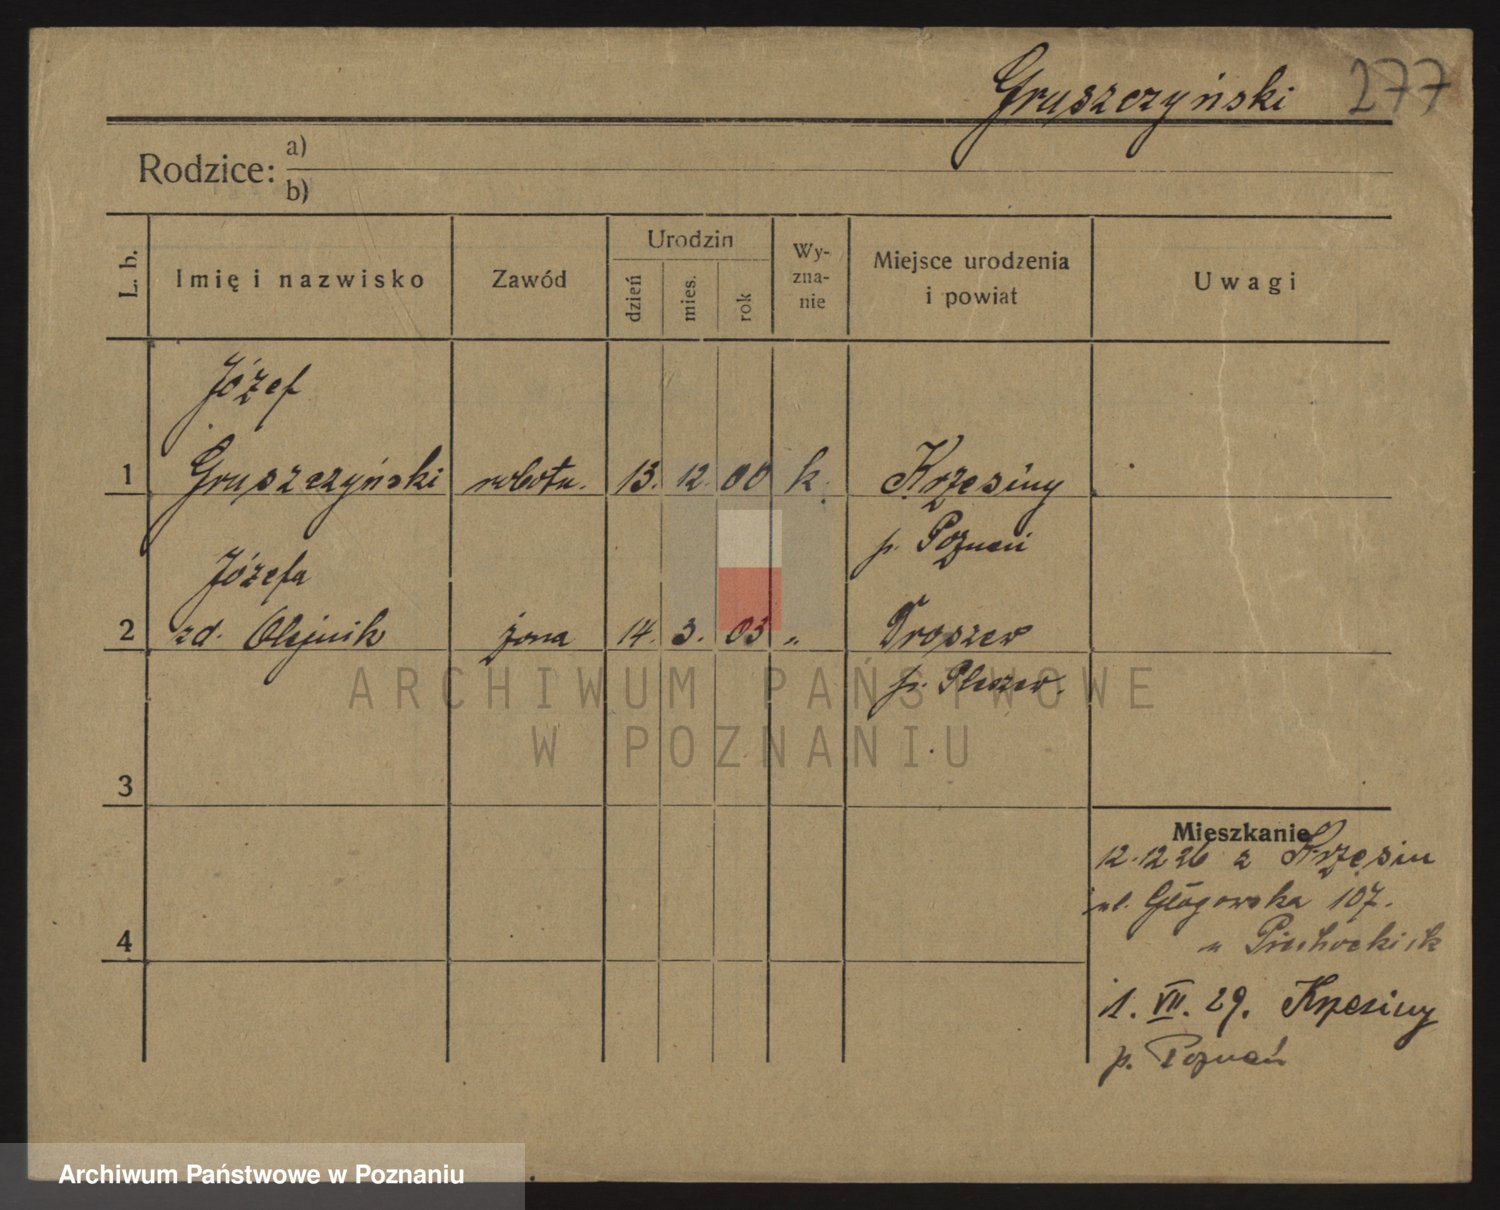 Gruszczyński 277
Rodzice: a)
b)
L. b. Imię i nazwisko Zawód Urodzin dzień mies. rok Wy-zna-nie Miejsce urodzenia i powiat Uwagi
Józef
1 Gruszczyński robotn. 13. 12. 00 k. Krzesiny
p. Poznań
Józefa
2 zd. Olejnik żona 14. 3. 03 „ Droszew
p. Pleszew.
ARCHIWUM PAŃSTWOWE
W POZNANIU
3
Mieszkanie
12.12 26 z Krzesin
ul. Głogowska 107.
4
1. VII. 29. Krzesiny
p. Poznań
Archiwum Państwowe w Poznaniu